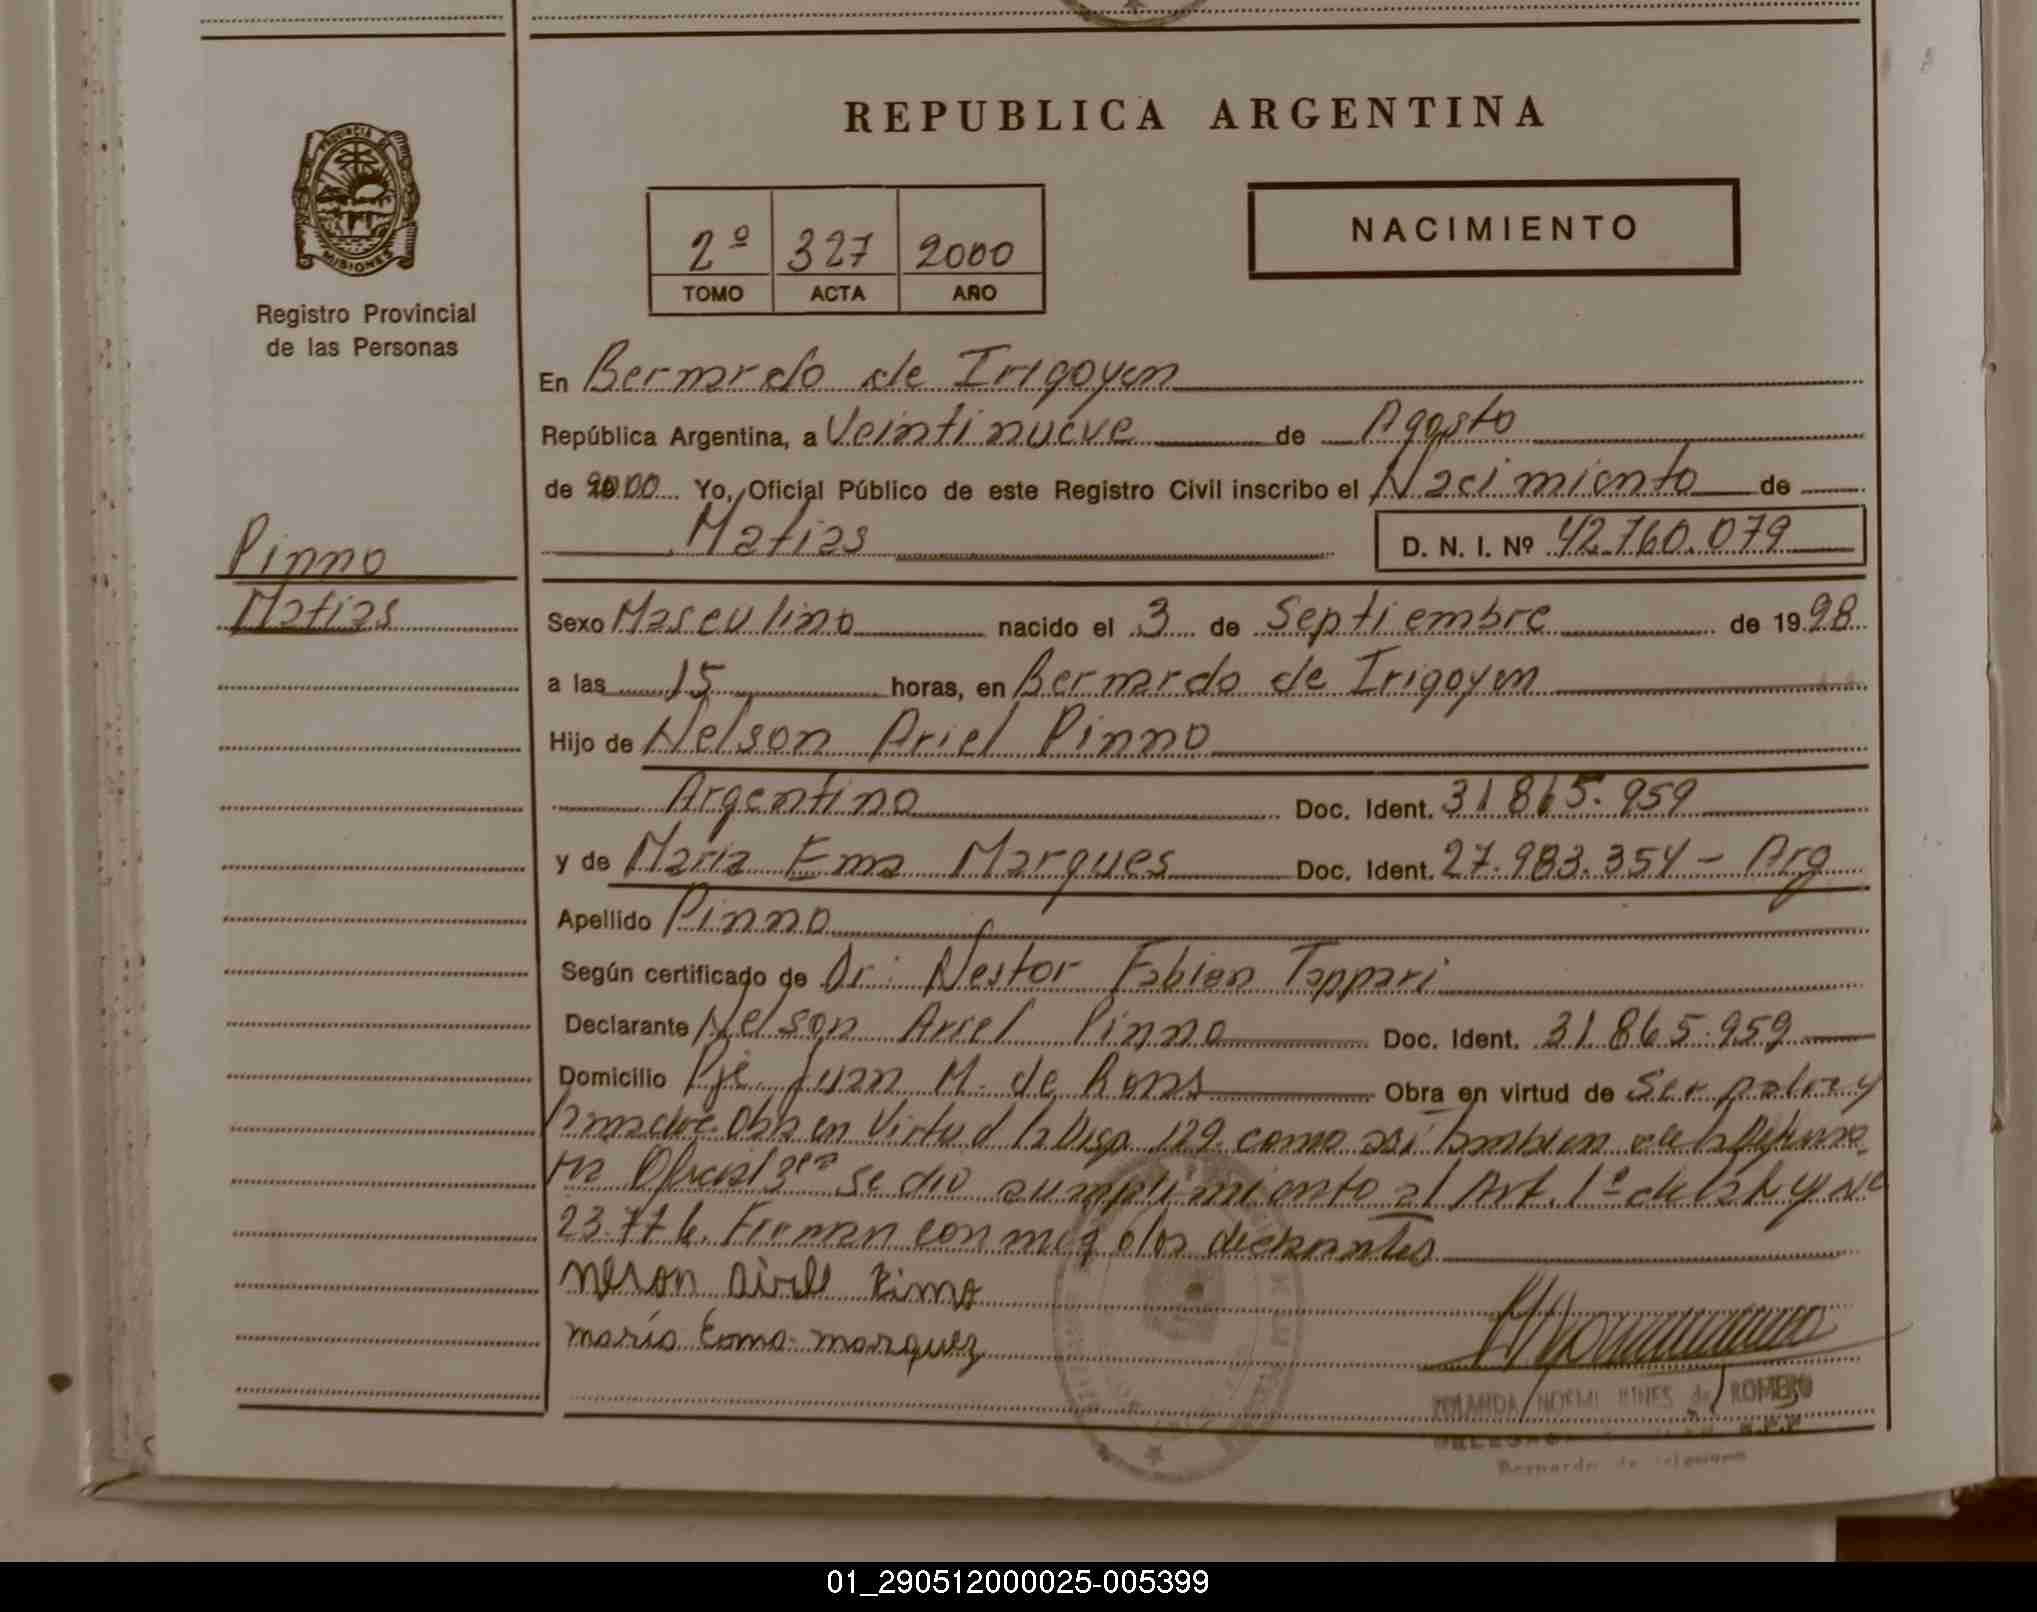 REPUBLICA ARGENTINA
PROVINCIA
MISIONES
Registro Provincial
de las Personas
2º 327 2000
TOMO ACTA AÑO
NACIMIENTO
En Bernardo de Irigoyen
República Argentina, a Veintinueve de Agosto
de 2000 Yo, Oficial Público de este Registro Civil inscribo el Nacimiento de
Matias D. N. I. Nº 42.760.079
Pinno
Matias
Sexo Masculino nacido el 3 de Septiembre de 1998
a las 15 horas, en Bernardo de Irigoyen
Hijo de Nelson Ariel Pinno
Argentino Doc. Ident. 31.865.959
y de Maria Ema Marques Doc. Ident. 27.983.354 - Arg
Apellido Pinno
Según certificado de Dr: Nestor Fabian Tappari
Declarante Nelson Ariel Pinno Doc. Ident. 31.865.959
Domicilio Pje Juan M. de Rosas Obra en virtud de Ser padre y
madre Obra en Virtud la Disp. 129. como asi tambien
Oficial 3era se dio cumplimiento al Art. 1º de la Ley Nº
23.776. Firman conmigo los declarantes
maria Ema marquez
NOEMI de ROMERO
Bernardo de Irigoyen
01_290512000025-005399